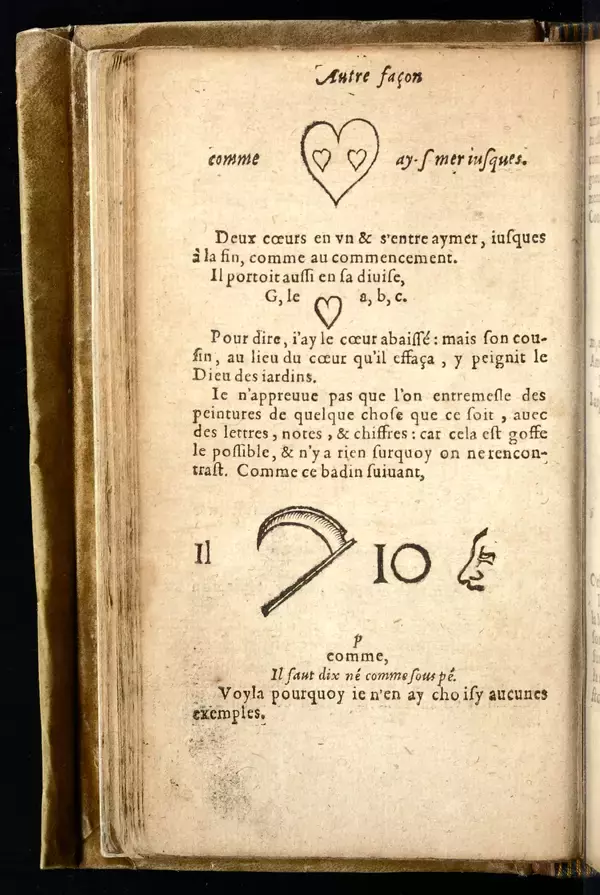 Autre façon
comme ay-ſmer iuſques.
Deux cœurs en vn & s'entre aymer, iuſques
à la fin, comme au commencement.
Il portoit auſſi en ſa diuiſe,
G, le a, b, c.
Pour dire, i'ay le cœur abaiſſé: mais ſon cou-
ſin, au lieu du cœur qu'il effaça, y peignit le
Dieu des iardins.
Ie n'appreuue pas que l'on entremeſle des
peintures de quelque choſe que ce ſoit, auec
des lettres, notes, & chiffres: car cela eſt goffe
le poſſible, & n'y a rien ſurquoy on ne rencon-
traſt. Comme ce badin ſuiuant,
Il IO
p
comme,
Il faut dix né comme ſous pé.
Voyla pourquoy ie n'en ay choiſy aucunes
exemples.